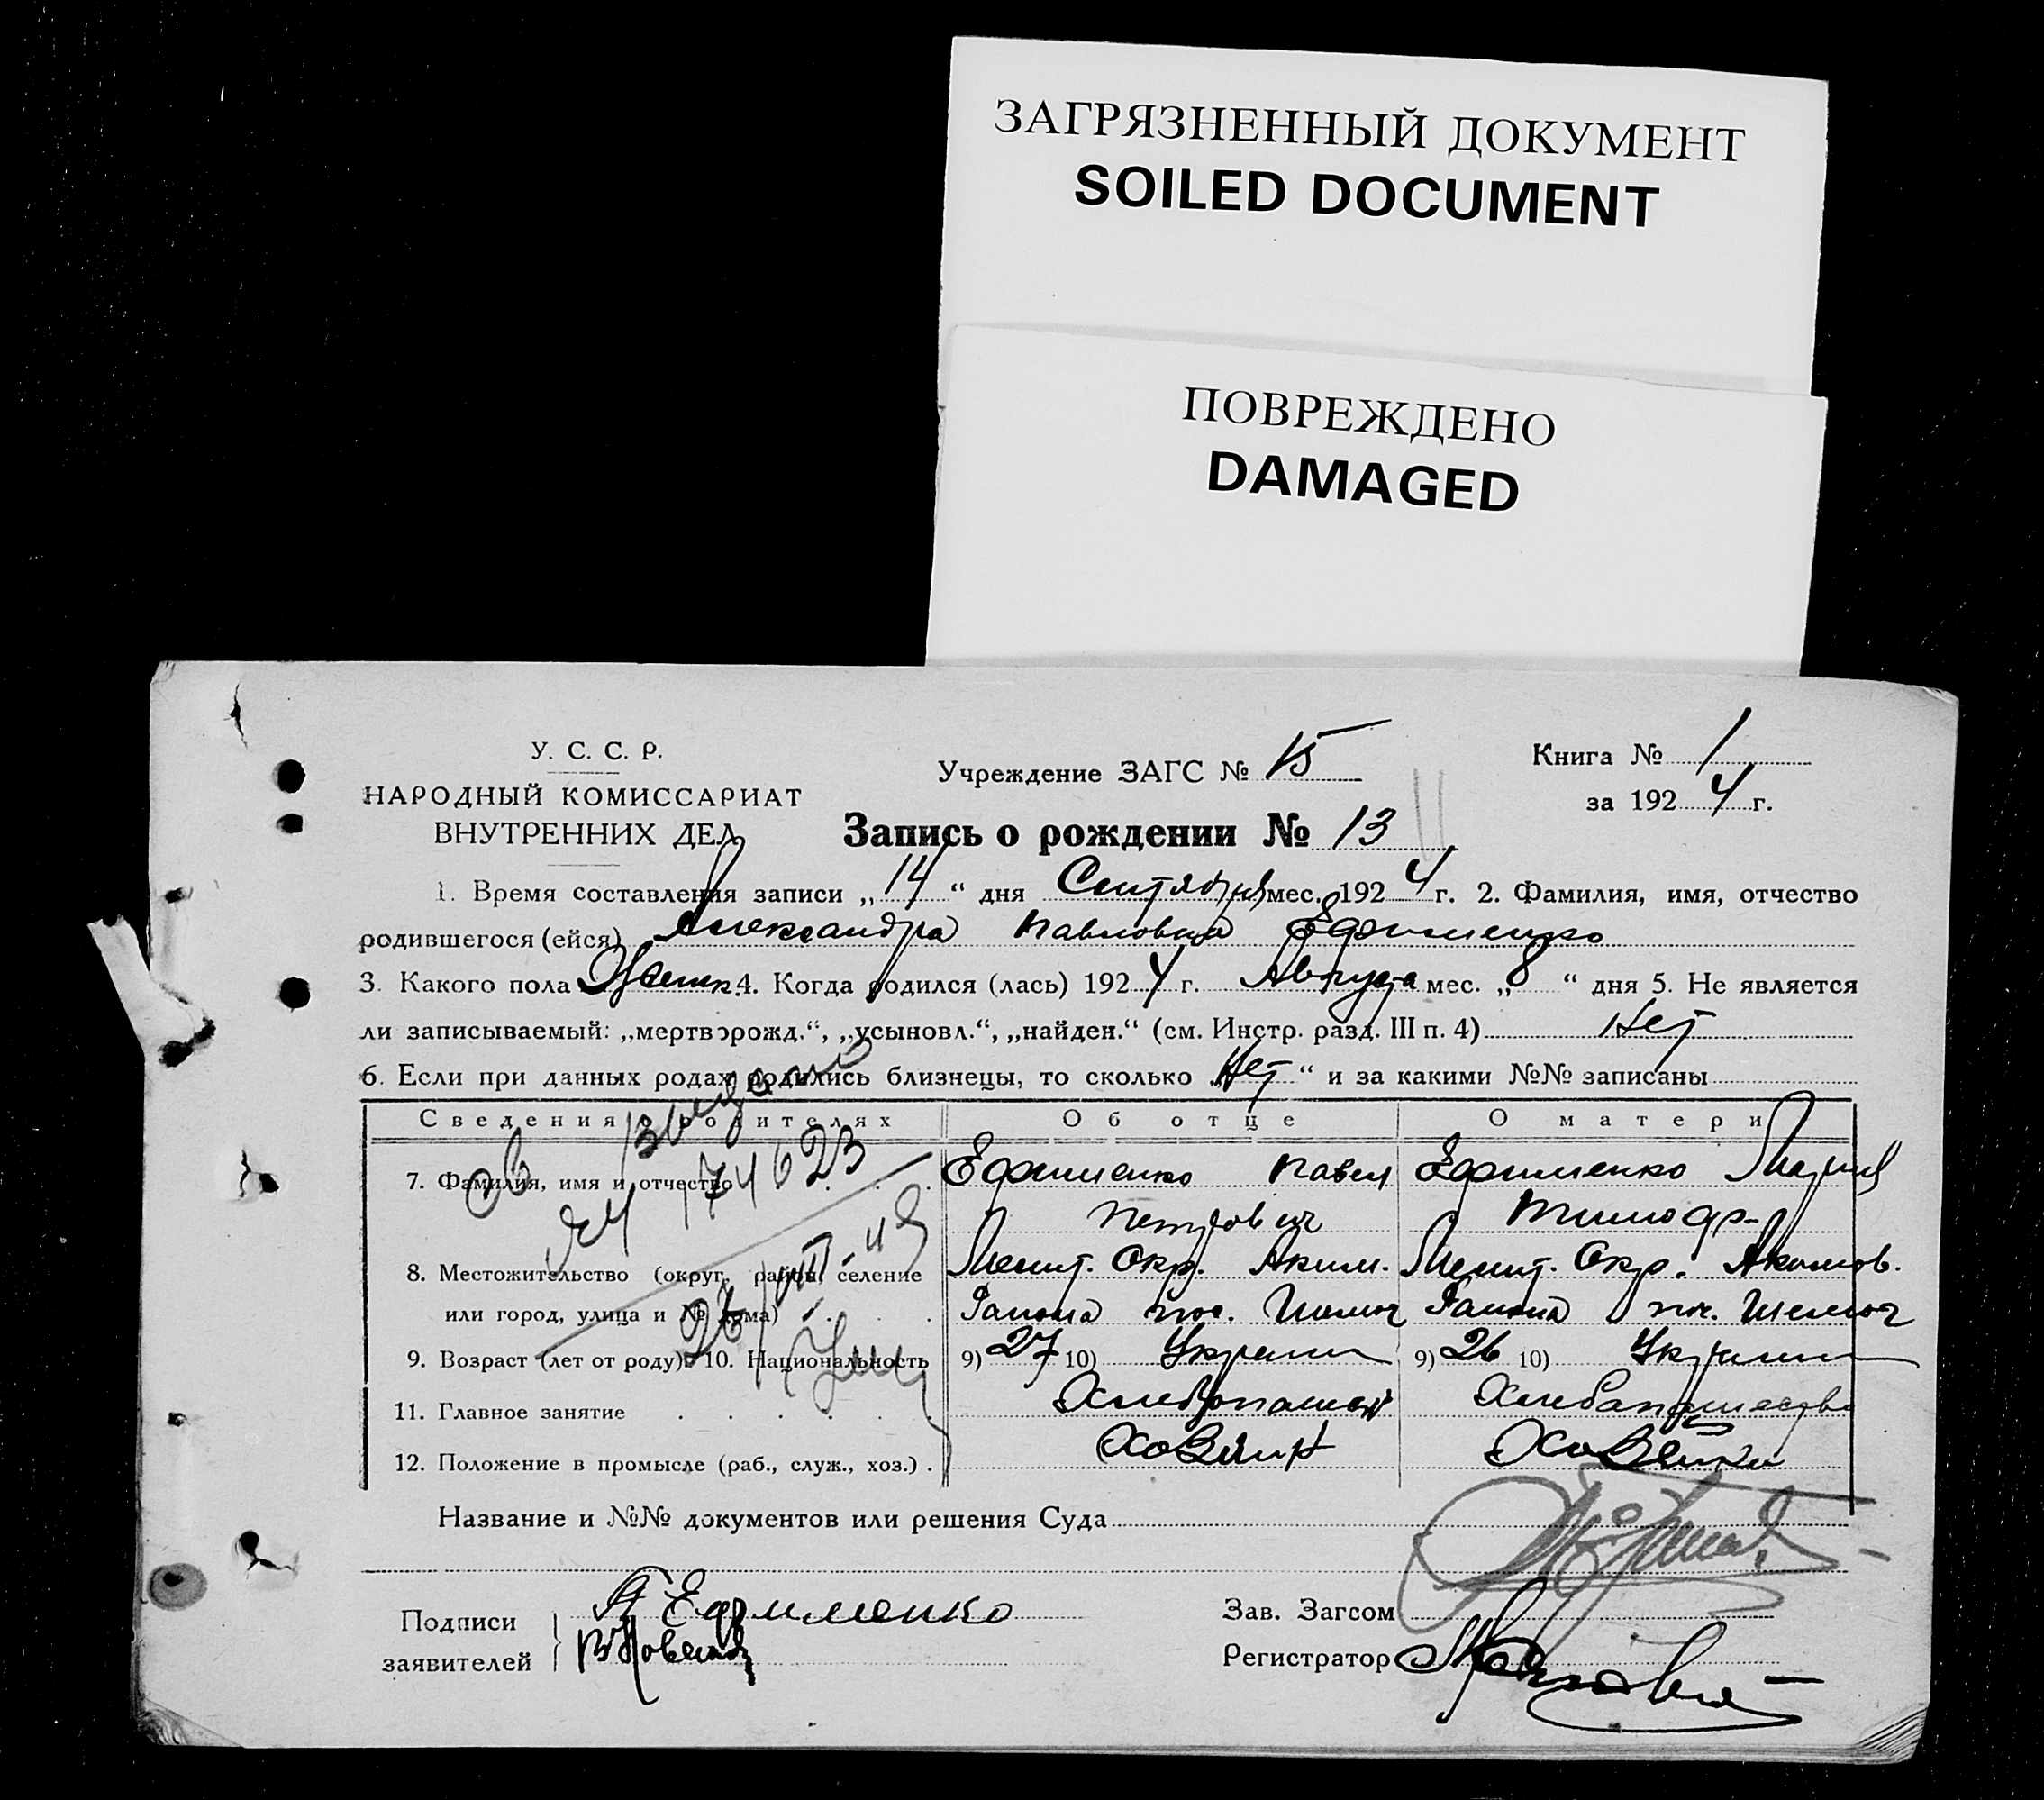 ЗАГРЯЗНЕННЫЙ ДОКУМЕНТ
SOILED DOCUMENT
ПОВРЕЖДЕНО
DAMAGED
У. С. С. Р.
НАРОДНЫЙ КОМИССАРИАТ
ВНУТРЕННИХ ДЕЛ
Учреждение ЗАГС № 15
Книга № 1
за 1924 г.
Запись о рождении № 13
1. Время составления записи „14“ дня Сентября мес. 1924 г. 2. Фамилия, имя, отчество
родившегося (ейся) Александра Павловна Ефименко
3. Какого пола Женск. 4. Когда родился (лась) 1924 г. Августа мес. „8“ дня 5. Не является
ли записываемый: „мертворожд.“, „усыновл.“, „найден.“ (см. Инстр. разд. III п. 4) Нет
6. Если при данных родах родились близнецы, то сколько „Нет“ и за какими №№ записаны
Сведения о родителях Об отце О матери
7. Фамилия, имя и отчество Ефименко Павел Ефименко Мария
Петрович Тимоф-
8. Местожительство (округ, район, селение Мелит. Окр. Аким. Мелит. Окр. Акимов.
или город, улица и № дома) Района пос. Района пос.
9. Возраст (лет от роду) 10. Национальность 9) 27 10) Украин 9) 26 10) Украин
11. Главное занятие Хлебопашест
12. Положение в промысле (раб., служ., хоз.) Хозяин Хозяйка
выдано
174623
26/VIII-49
Название и №№ документов или решения Суда
Подписи
заявителей
П Ефименко
Зав. Загсом
Регистратор